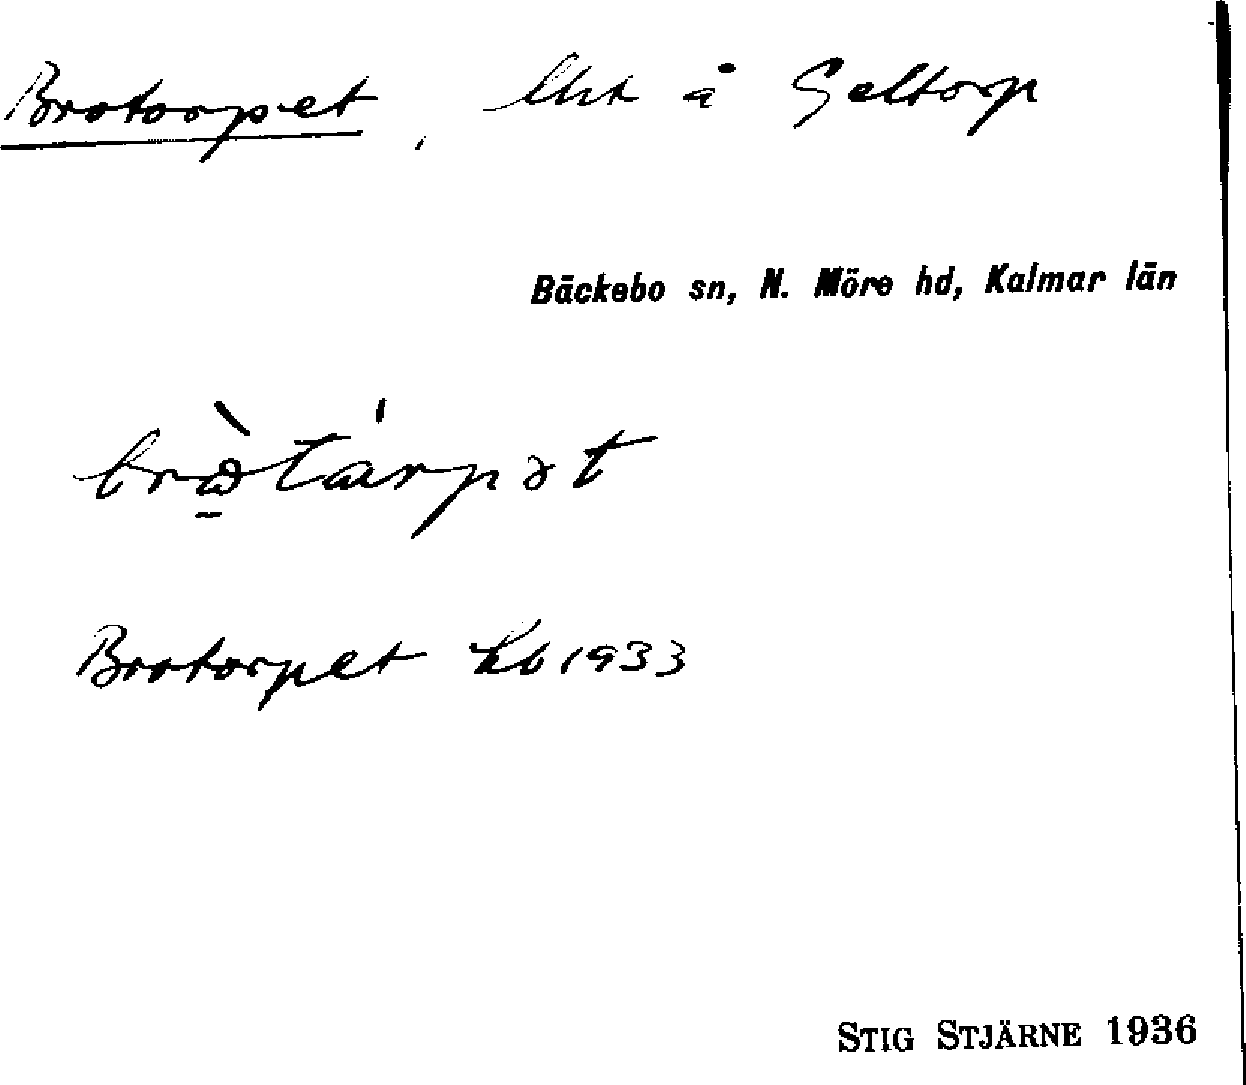 Brotorpet, lht å Geltorp
Bäckebo sn, N. Möre hd, Kalmar län
Brotorpet kb 1933
STIG STJÄRNE 1936